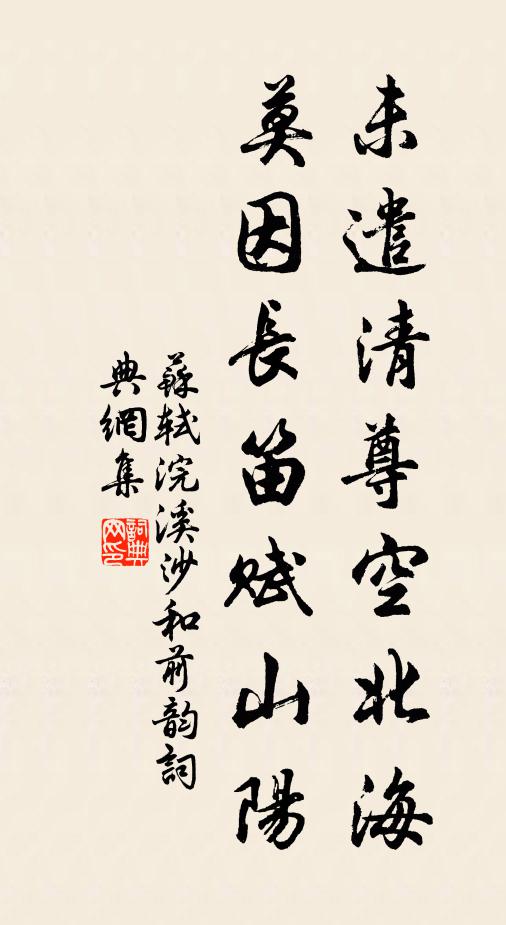 未遣清尊空北海
莫因長笛賦山陽
蘇軾浣溪沙和前韵詞
典網集
詞典
网印